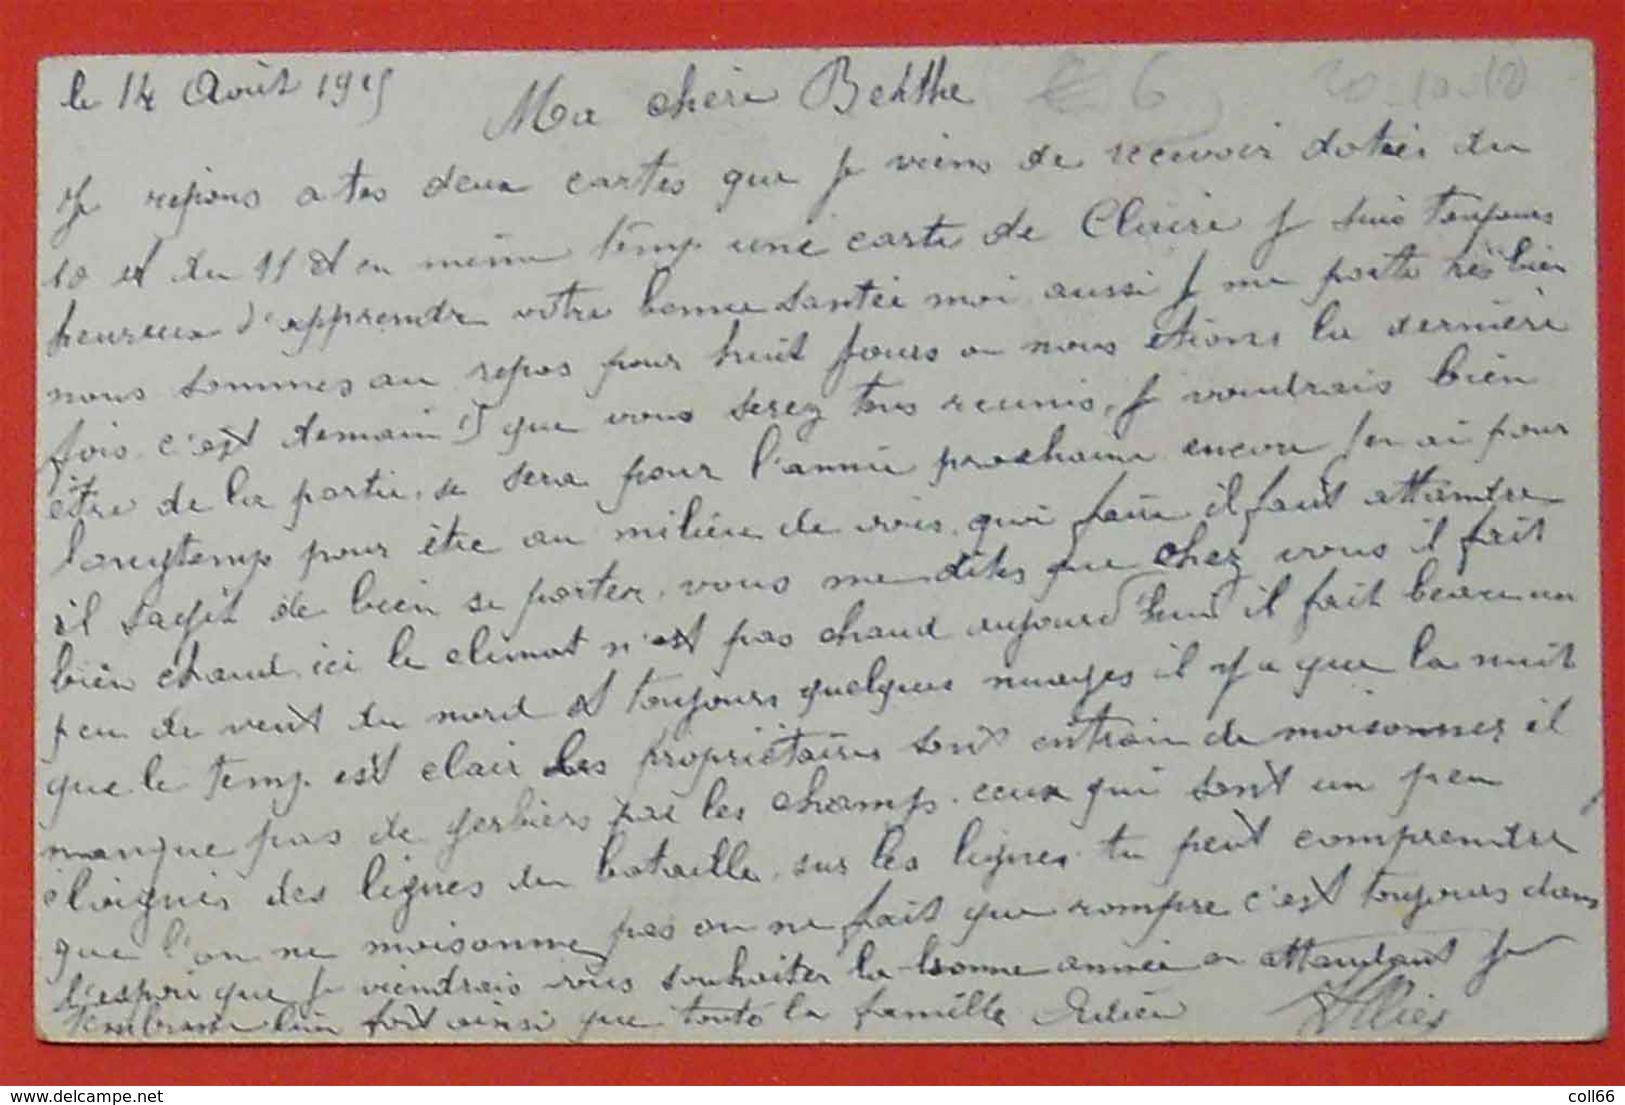 le 14 Août 1915
Ma chère Berthe
6 20-10-18
Je repons a tes deux cartes que je viens de recevoir dotées du
10 et du 11 et en même temp une carte de Claire je suis toujours
heureux d'apprendre votre bonne santée moi aussi je me porte tès bien
nous sommes au repos pour huit jours ou nous étions la dernière
fois. c'est demain 15 que vous serez tous reunis, je voudrais bien
être de la partie, se sera pour l'année prochaine encore j'en ai pour
longtemp pour être au milieu de vous. qui faire il faut attandre
il sagit de bien se porter. vous me dites que chez vous il fait
bien chaud, ici le climat n'est pas chaud aujourd'hui il fait beau un
peu de vent du nord et toujours quelques nuages il y a que la nuit
que le temp. est clair Les propriétaires sont entrain de moisonner il
manque pas de gerbiers par les champ. ceux qui sont un peu
éloignés des lignes de bataille. sur les lignes tu peut comprendre
que l'on ne moisonne pas on ne fait que rompre c'est toujours dans
l'espoir que je viendrais vous souhaiter la bonne année en attandant je
t'embrasse bien fort ainsi que toute la famille
coll66